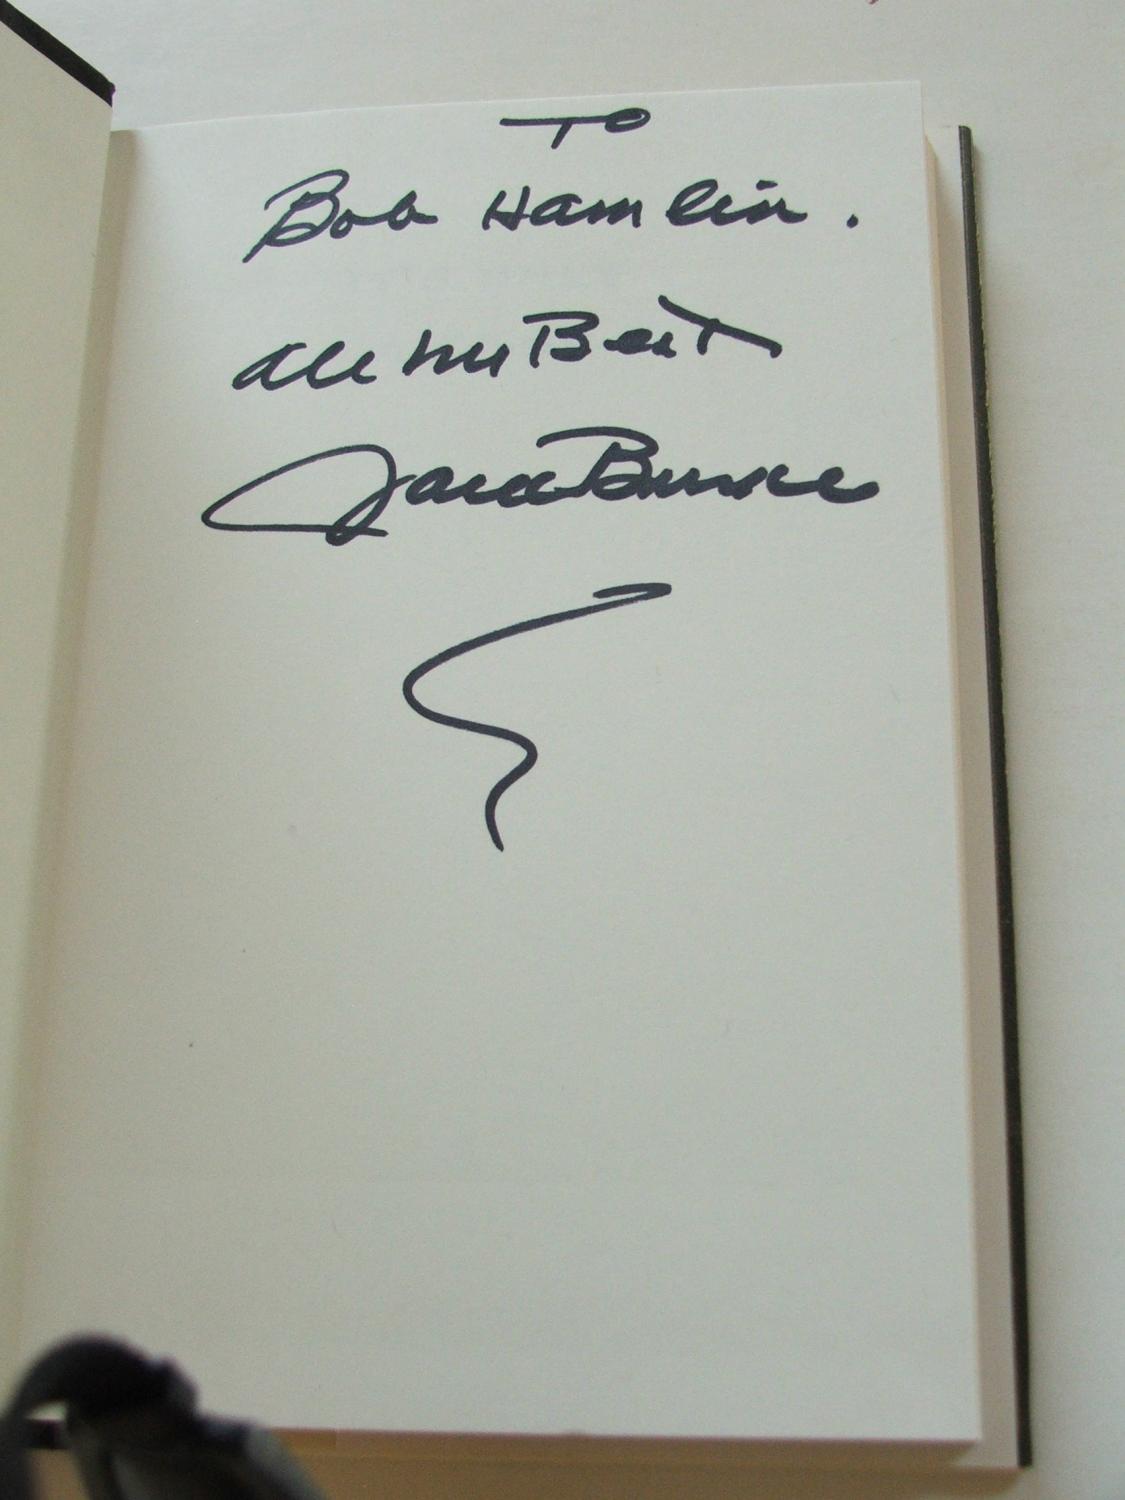 To
Bob Hamlin.
All my Best
Jack Burke